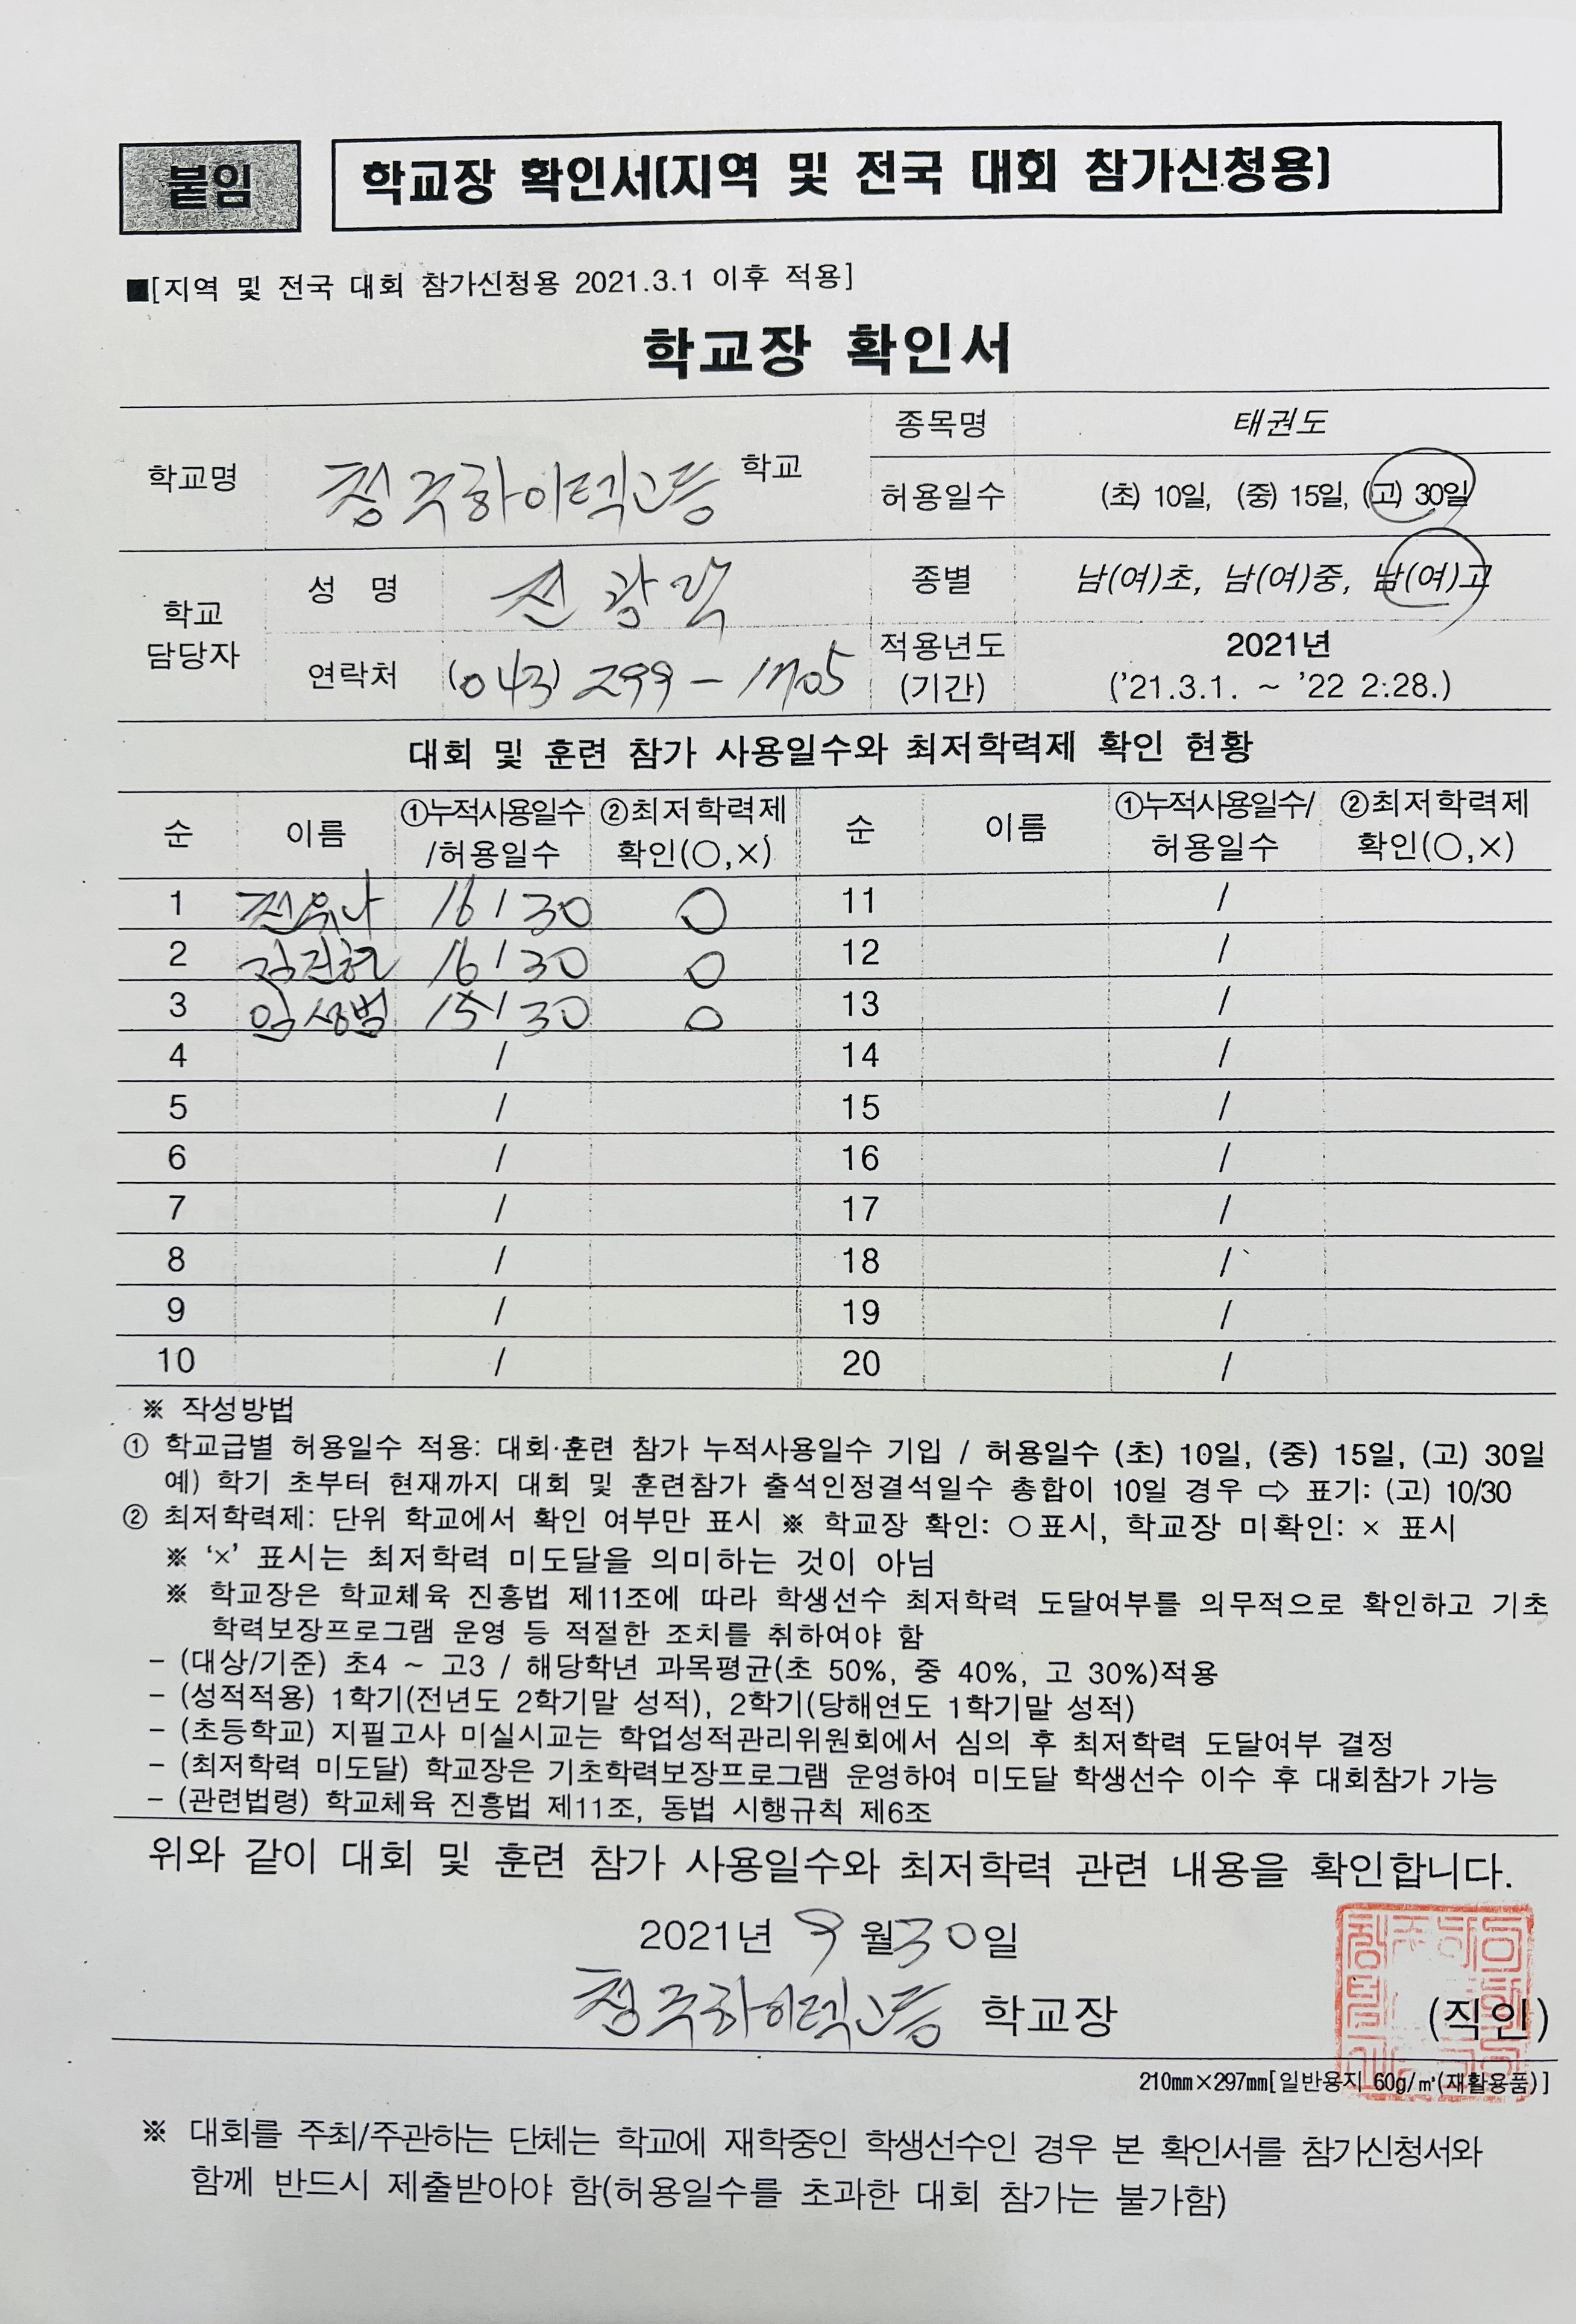 붙임
학교장 확인서(지역 및 전국 대회 참가신청용)
■[지역 및 전국 대회 참가신청용 2021.3.1 이후 적용]
학교장 확인서
학교명 청주하이텍고등 학교
종목명 태권도
허용일수 (초) 10일, (중) 15일, (고) 30일
학교 담당자
성 명 전광락
종별 남(여)초, 남(여)중, 남(여)고
연락처 (043) 299 - 1705
적용년도 2021년
(기간) ('21.3.1. ~ '22 2:28.)
대회 및 훈련 참가 사용일수와 최저학력제 확인 현황
순 이름 ①누적사용일수/허용일수 ②최저학력제 확인(○,×) 순 이름 ①누적사용일수/허용일수 ②최저학력제 확인(○,×)
1 16/30 ○ 11 /
2 16/30 ○ 12 /
3 임상범 15/30 ○ 13 /
4 / 14 /
5 / 15 /
6 / 16 /
7 / 17 /
8 / 18 /
9 / 19 /
10 / 20 /
※ 작성방법
① 학교급별 허용일수 적용: 대회·훈련 참가 누적사용일수 기입 / 허용일수 (초) 10일, (중) 15일, (고) 30일
예) 학기 초부터 현재까지 대회 및 훈련참가 출석인정결석일수 총합이 10일 경우 ⇨ 표기: (고) 10/30
② 최저학력제: 단위 학교에서 확인 여부만 표시 ※ 학교장 확인: ○표시, 학교장 미확인: × 표시
※ '×' 표시는 최저학력 미도달을 의미하는 것이 아님
※ 학교장은 학교체육 진흥법 제11조에 따라 학생선수 최저학력 도달여부를 의무적으로 확인하고 기초
학력보장프로그램 운영 등 적절한 조치를 취하여야 함
- (대상/기준) 초4 ~ 고3 / 해당학년 과목평균(초 50%, 중 40%, 고 30%)적용
- (성적적용) 1학기(전년도 2학기말 성적), 2학기(당해연도 1학기말 성적)
- (초등학교) 지필고사 미실시교는 학업성적관리위원회에서 심의 후 최저학력 도달여부 결정
- (최저학력 미도달) 학교장은 기초학력보장프로그램 운영하여 미도달 학생선수 이수 후 대회참가 가능
- (관련법령) 학교체육 진흥법 제11조, 동법 시행규칙 제6조
위와 같이 대회 및 훈련 참가 사용일수와 최저학력 관련 내용을 확인합니다.
2021년 9월 30일
청주하이텍고등 학교장 (직인)
210㎜×297㎜[일반용지 60g/㎡(재활용품)]
※ 대회를 주최/주관하는 단체는 학교에 재학중인 학생선수인 경우 본 확인서를 참가신청서와
함께 반드시 제출받아야 함(허용일수를 초과한 대회 참가는 불가함)